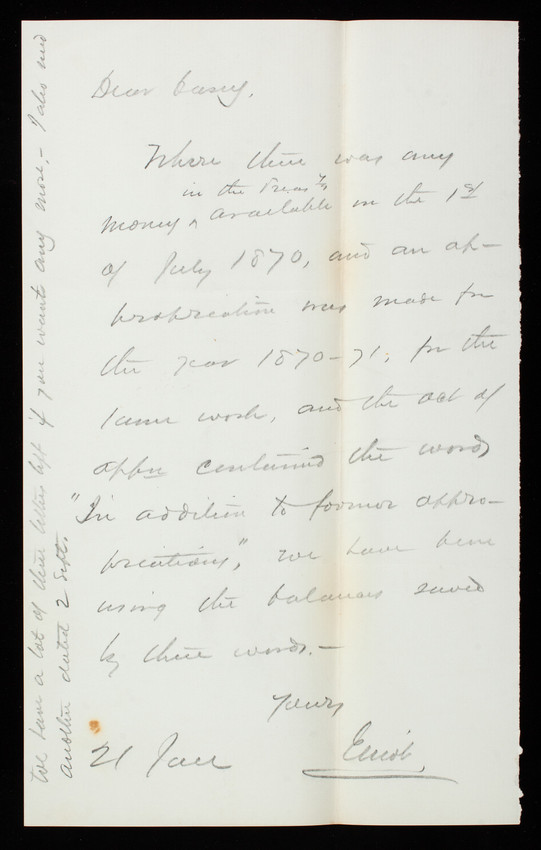 Dear Casey,
Where there was any
in the Treas'y
money ^ available on the 1st
of July 1870, and an ap-
propriation was made for
the year 1870-71, for the
same work, and the act of
appn contained the words
"In addition to former appro-
priations," we have been
using the balances saved
by these words.-
Yours
21 Jan
We have a lot of these letters left if you want any more.- I also send
another dated 2 Sept.